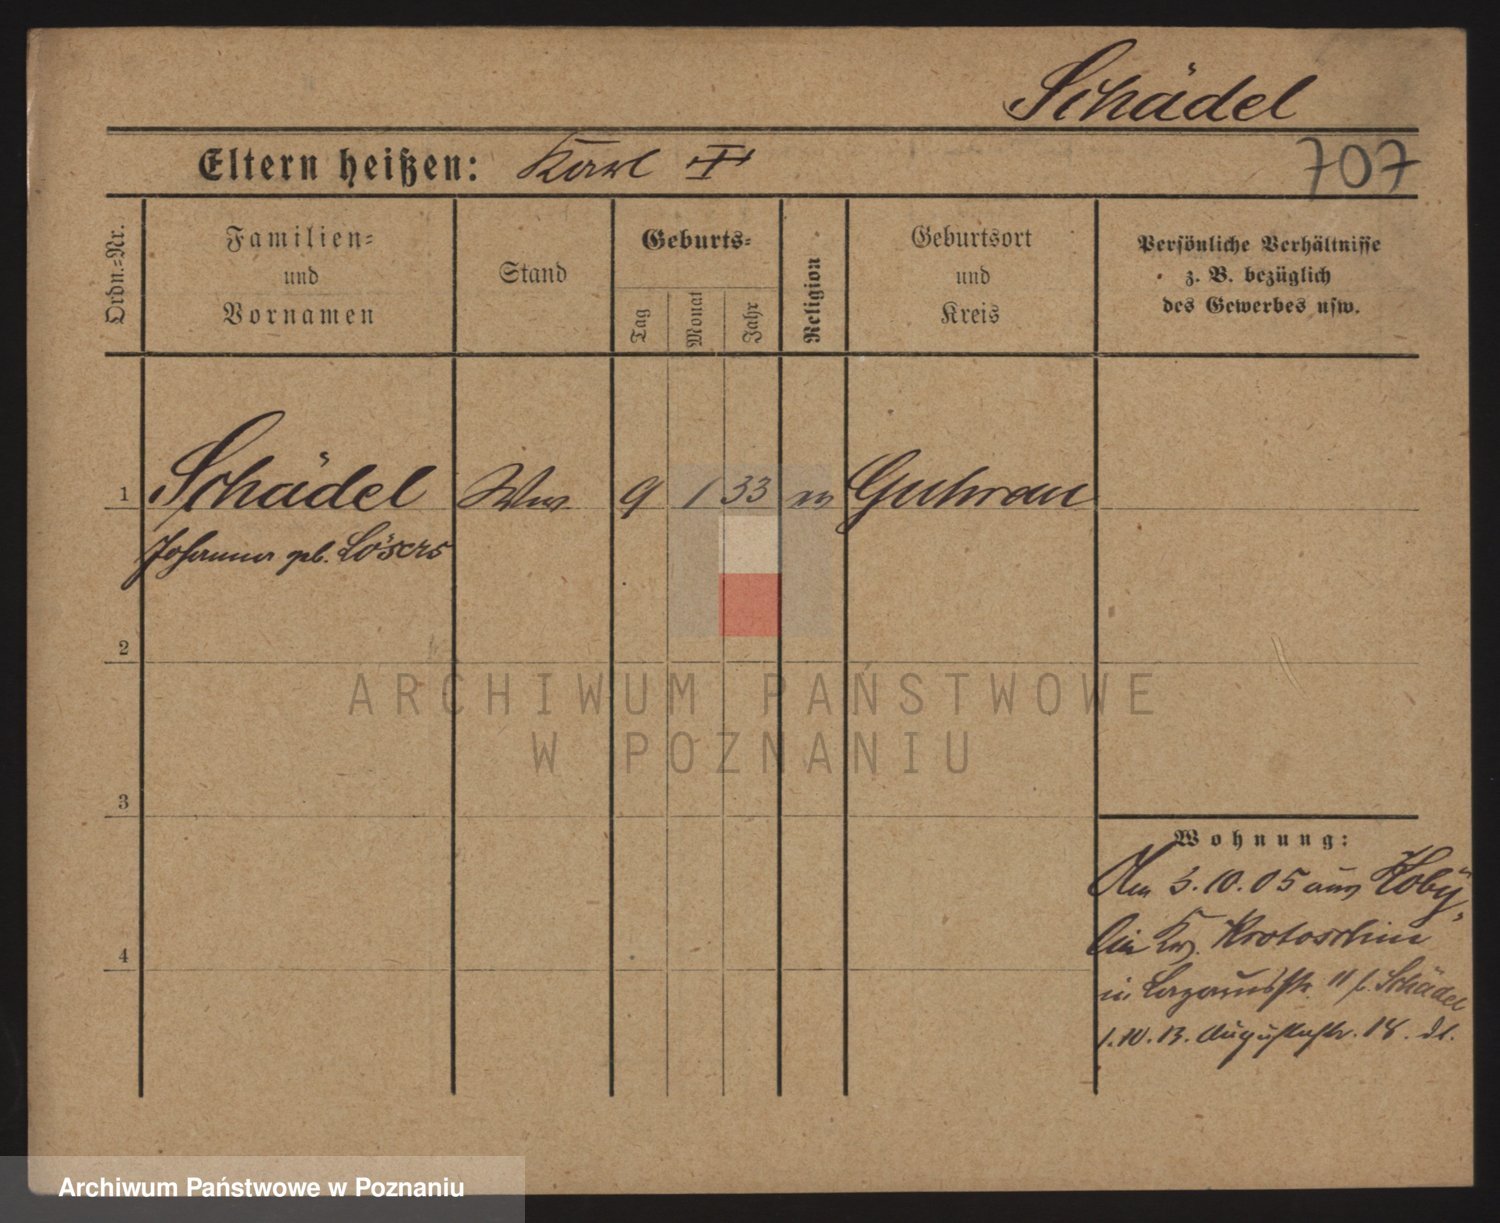 Schädel
Eltern heißen: Karl
707
Ordn.-Nr.
Familien-
und
Vornamen
Stand
Geburts-
Tag
Monat
Jahr
Religion
Geburtsort
und
Kreis
Persönliche Verhältnisse
z. B. bezüglich
des Gewerbes usw.
1 Schädel Ww 9 1 33 Guhrau
Johanna geb.
2
ARCHIWUM PAŃSTWOWE
W POZNANIU
3
Wohnung:
3.10.05 aus
Krotoschin
4
in Lazarusstr. 11 b. Schädel
1.10.13. Augustastr. 18.
Archiwum Państwowe w Poznaniu